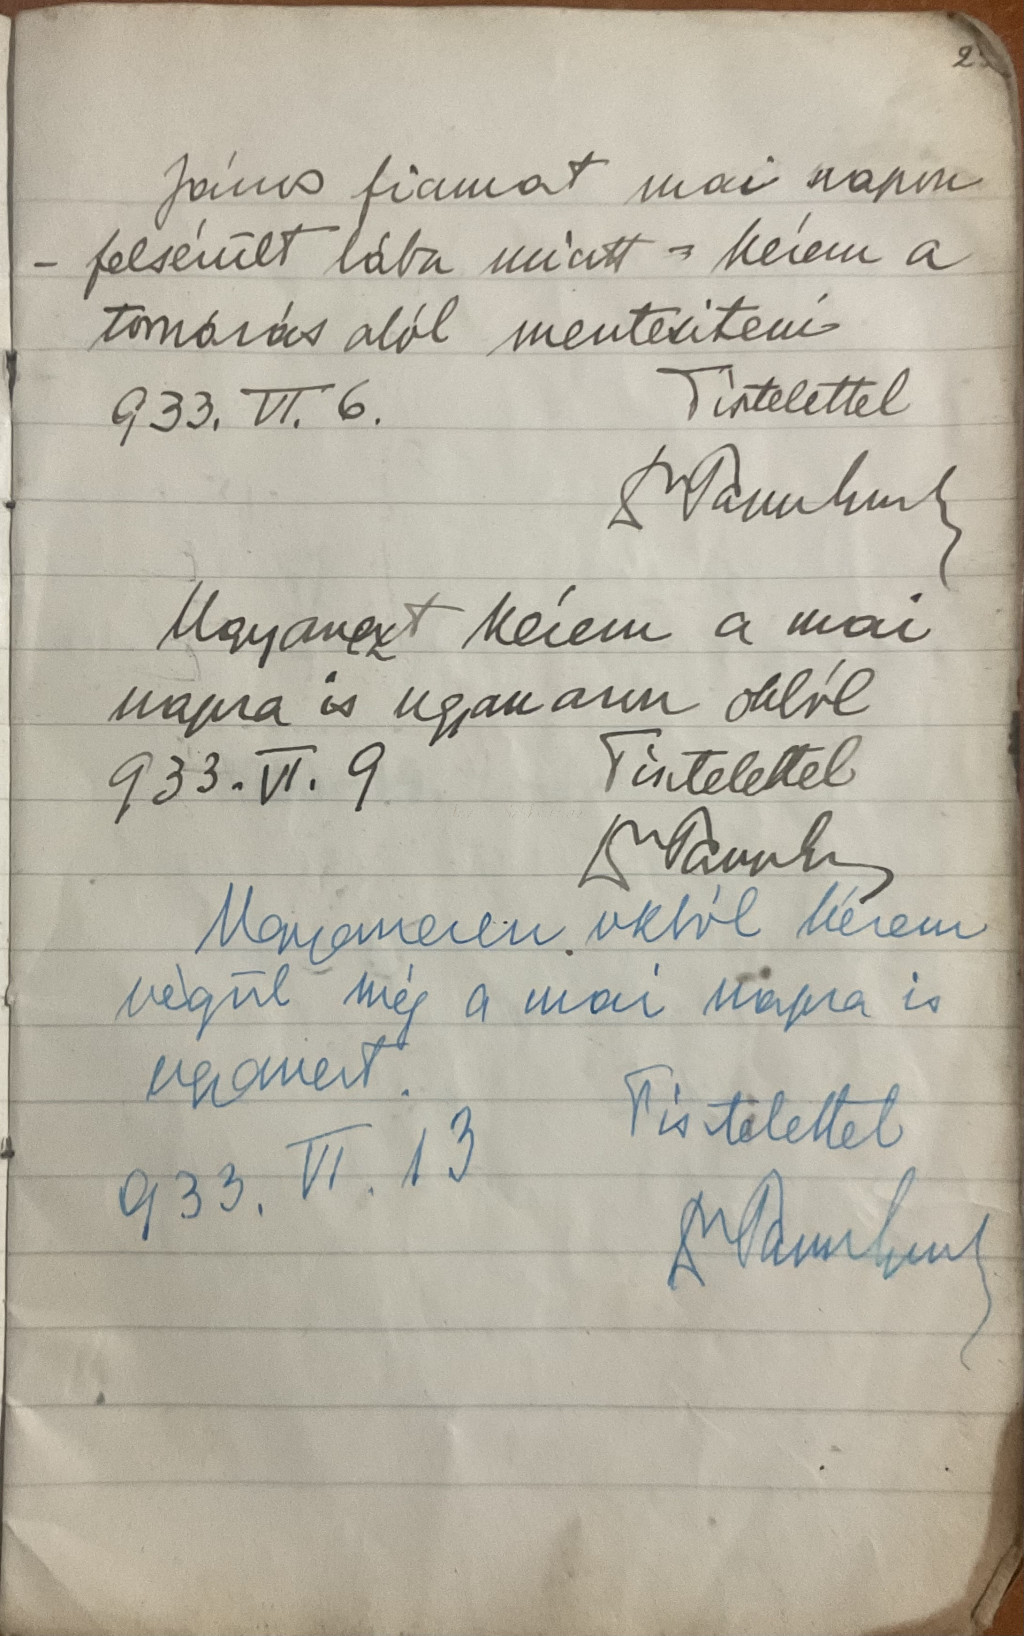 János fiamat mai napon
- felsérült lába miatt - kérem a
tornázás alól mentesíteni
933. VI. 6. Tisztelettel
Dr
Ugyanezt kérem a mai
napra is ugyanazon okból
933. VI. 9 Tisztelettel
Dr
Ugyanezen okból kérem
végül még a mai napra is
ugyanezt.
Tisztelettel
933. VI. 13
Dr